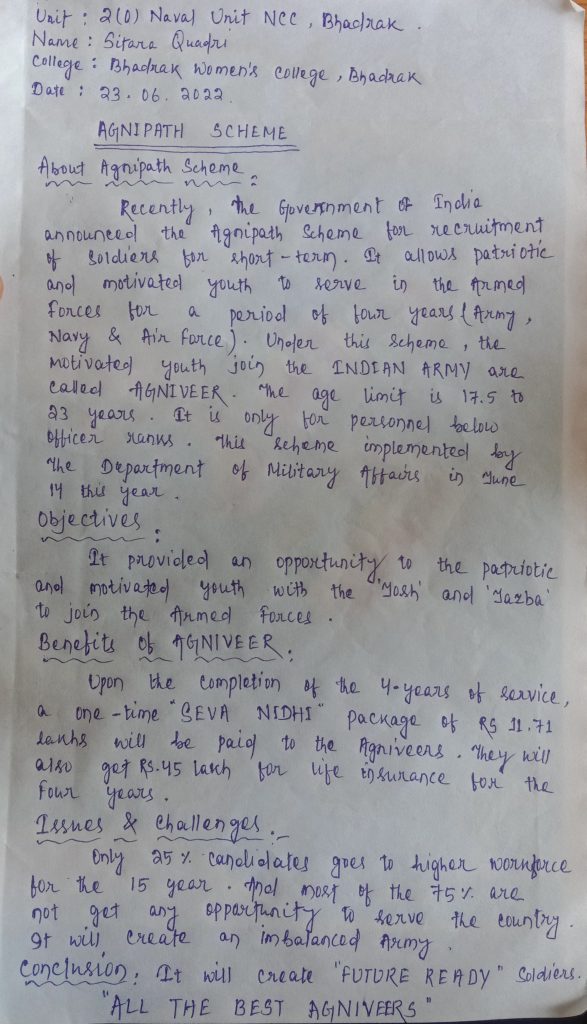 Unit : 2(O) Naval Unit NCC , Bhadrak .
Name : Sitara Quadri
College : Bhadrak Women's College , Bhadrak
Date : 23. 06. 2022.
AGNIPATH SCHEME
About Agnipath Scheme :
Recently , the Government of India
announced the Agnipath Scheme for recruitment
of Soldiers for short-term. It allows patriotic
and motivated youth to serve in the Armed
Forces for a period of four years (Army,
Navy & Air Force). Under this Scheme , the
motivated youth join the INDIAN ARMY are
called AGNIVEER. The age limit is 17.5 to
23 years . It is only for personnel below
officer ranks . This scheme implemented by
the Department of Military Affairs in June
14 this year .
Objectives :
It provided an opportunity to the patriotic
and motivated youth with the 'Josh' and 'Jazba'
to join the Armed Forces .
Benefits Of AGNIVEER :
Upon the completion of the 4-years of service,
a one-time "SEVA NIDHI" package of RS 11.71
lakhs will be paid to the Agniveers . They will
also get RS.45 lakh for life insurance for the
four years .
Issues & Challenges .-
Only 25 % candidates goes to higher workforce
for the 15 year . And most of the 75% are
not get any opportunity to serve the country.
It will create an imbalanced Army .
Conclusion : It will create "FUTURE READY" Soldiers.
"ALL THE BEST AGNIVEERS"